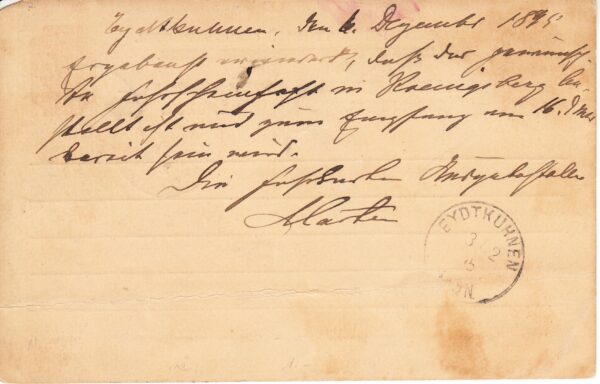 Eydtkuhnen, den 6. Dezember 1895
Ergebenst erwidert, daß das gewünsch-
te Fahrscheinheft in Koenigsberg be-
stellt ist und zum Empfang am 16. d. Mts
bereit sein wird.
Die Fahrkarten Ausgabestelle
EYDTKUHNEN